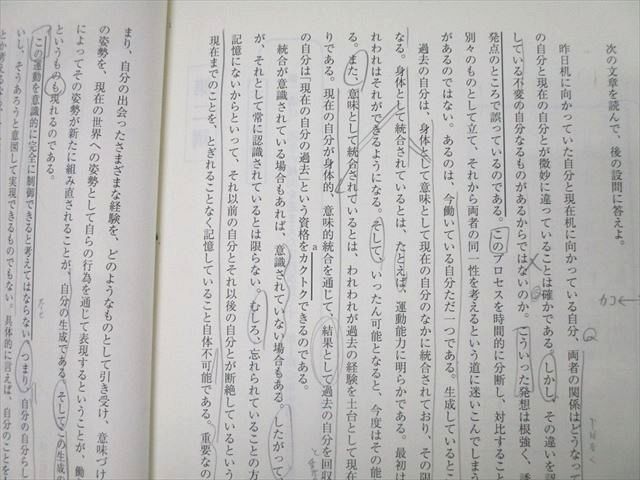 次の文章を読んで、後の設問に答えよ。
昨日机に向かっていた自分と現在机に向かっている自分、両者の関係はどうなって
の自分と現在の自分とが微妙に違っていることは確かである。しかし、その違いを認
している不変の自分なるものがあるからではないのか。こういった発想は根強く、誘
発点のところで誤っているのである。このプロセスを時間的に分断し、対比すること
別々のものとして立て、それから両者の同一性を考えるという道に迷いこんでしまう
があるのではない。あるのは、今働いている自分ただ一つである。生成しているとこ
過去の自分は、身体として意味として現在の自分のなかに統合されており、その限
なる。身体として統合されているとは、たとえば、運動能力に明らかである。最初は
れわれはそれができるようになる。そして、いったん可能となると、今度はその能
る。また、意味として統合されているとは、われわれが過去の経験を土台として現在
りである。現在の自分が身体的、意味的統合を通じて、結果として過去の自分を回収
の自分は「現在の自分の過去」という資格をカクトクできるのである。
a
統合が意識されている場合もあれば、意識されていない場合もある。したがって、
が、それとして常に認識されているとは限らない。むしろ、忘れられていることの方
記憶にないからといって、それ以前の自分とそれ以後の自分とが断絶しているという
現在までのことを、とぎれることなく記憶していること自体不可能である。重要なの
まり、自分の出会ったさまざまな経験を、どのようなものとして引き受け、意味づけ
の姿勢を、現在の世界への姿勢として自らの行為を通じて表現するということが、働
によってその姿勢が新たに組み直されることが、自分の生成である。そしてこの生成の
というものも現れるのである。
この運動を意識的に完全に制御できると考えてはならない。つまり、自分の自分らし
いし、そうあろうと意図して実現できるものでもない。具体的に言えば、自分のことを